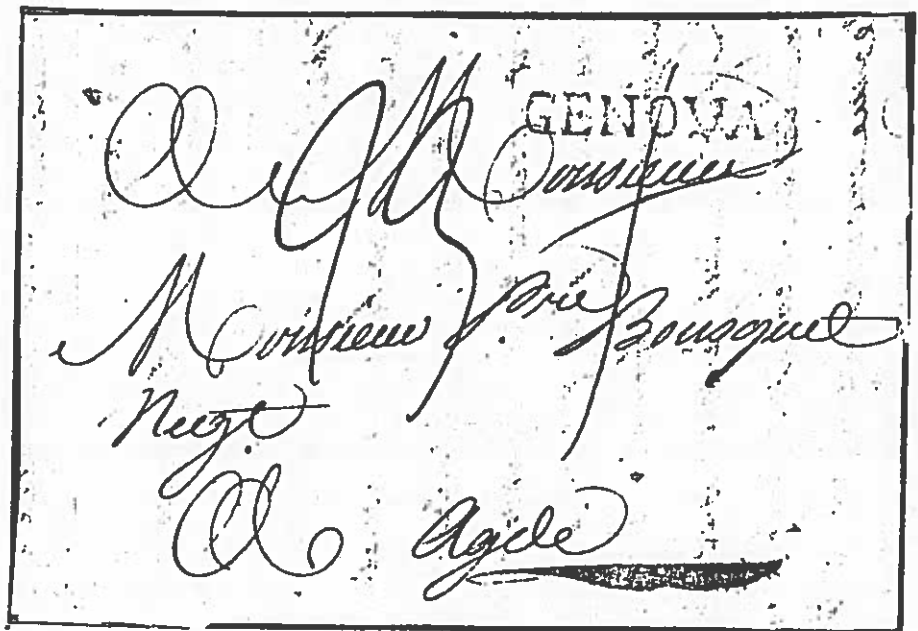 GENOVA
A Monsieur
Monsieur Pre Bousquet
Negt
A Agde